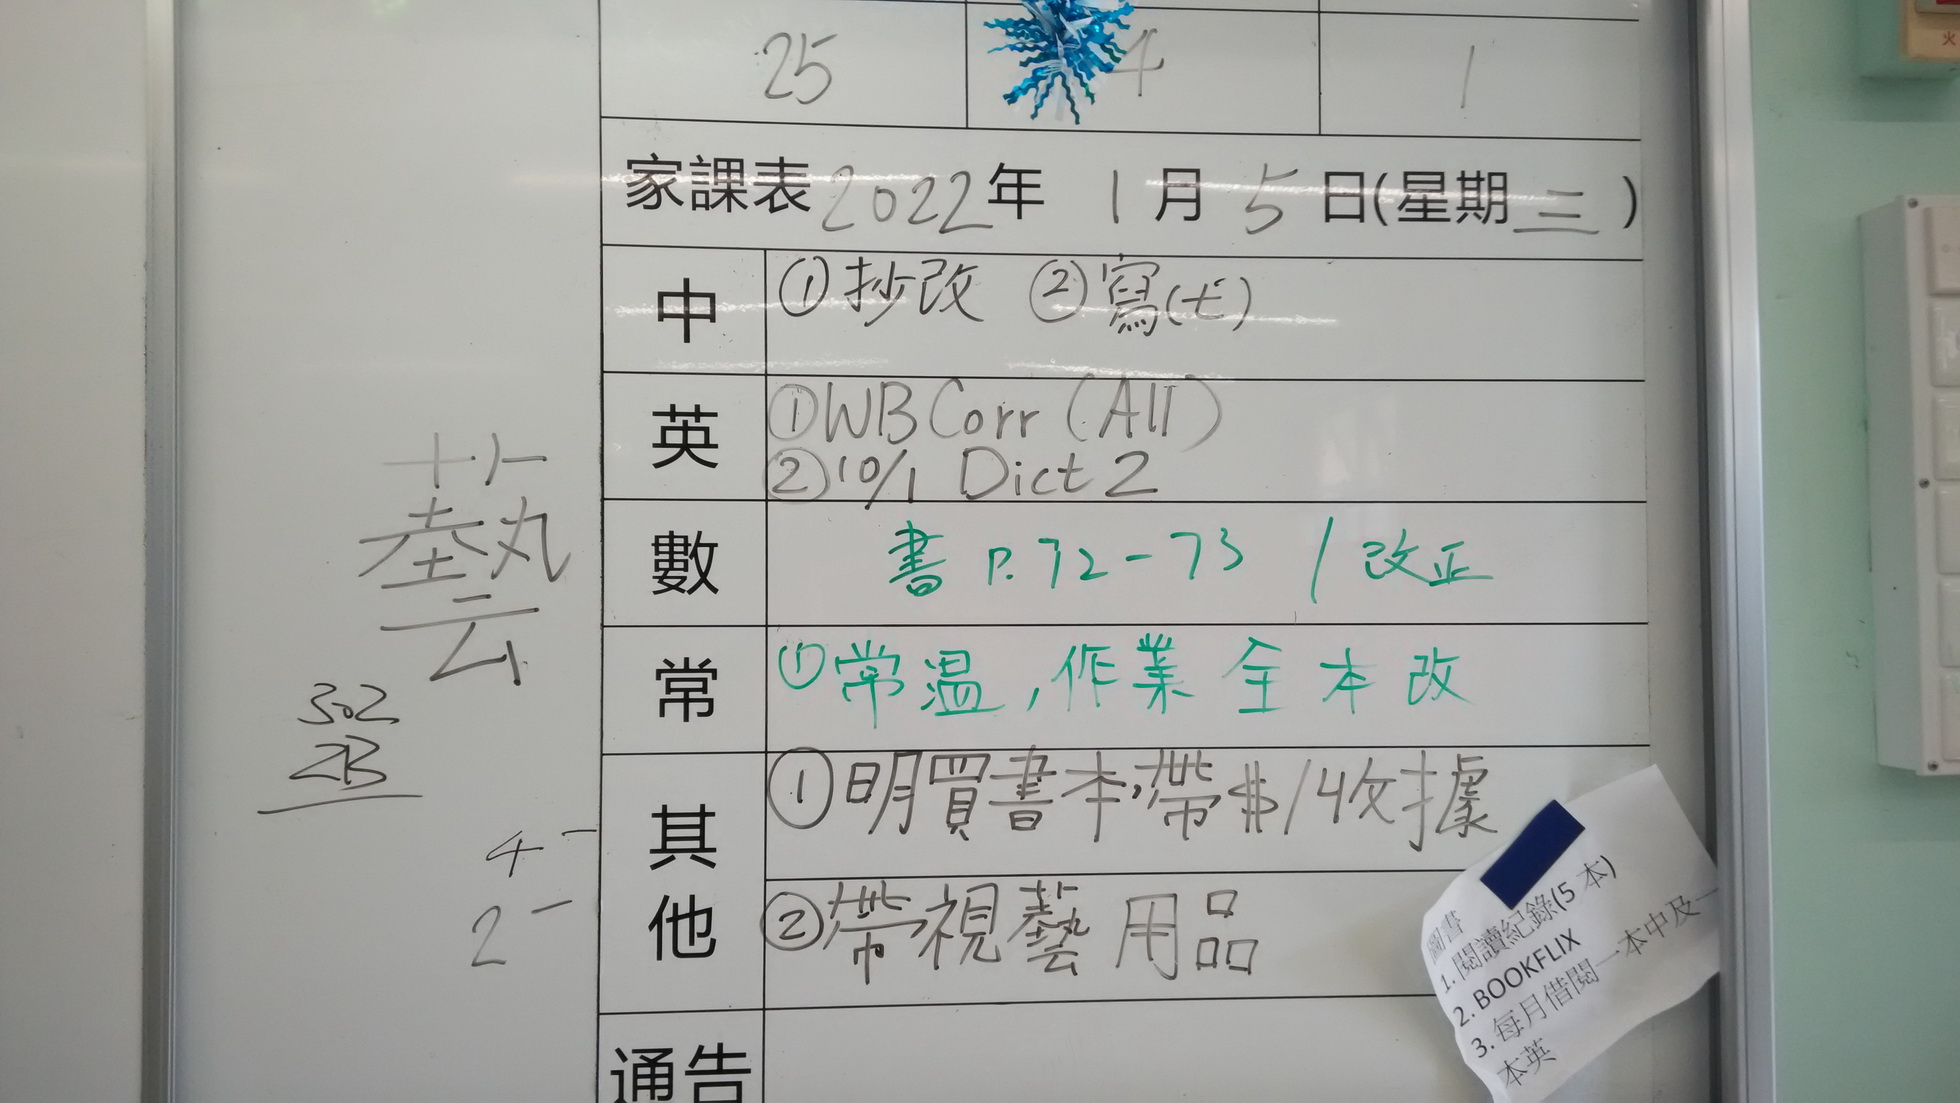 25 4 1
家課表2022年 1月5日(星期三)
中 ①抄改 ②寫(七)
英 ①WB Corr (All)
②10/1 Dict 2
數 書 P.72-73 / 改正
常 ①常溫,作業全本改
其他 ①明買書本,帶$/收據
②帶視藝用品
通告
藝
302
2B
4-
2-
圖書
1. 閱讀紀錄(5 本)
2. BOOKFLIX
3. 每月借閱一本中及一
本英
火